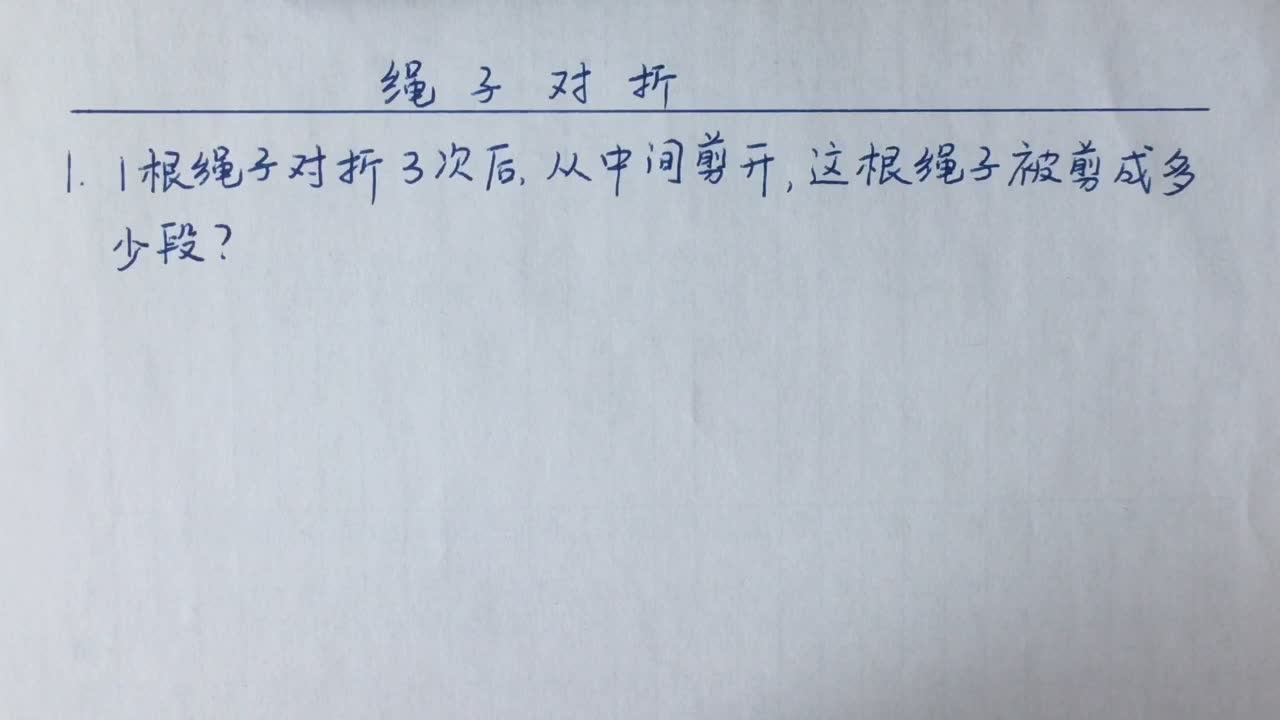 绳子对折
1. 1根绳子对折3次后,从中间剪开,这根绳子被剪成多
少段?